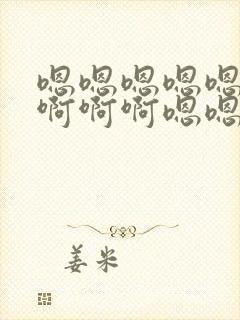 嗯嗯嗯嗯嗯
啊啊啊嗯嗯
姜米